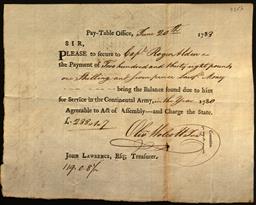 Pay-Table Office, June 20th 1783
SIR,
PLEASE to secure to Capt Roger Alden
the Payment of Two hundred and thirty eight pounds
one Shilling and four pence Lawf Money
being the Balance found due to him
for Service in the Continental Army, in the Year 1780
Agreeable to Act of Assembly—and Charge the State.
John Lawrence, Esq; Treasurer.